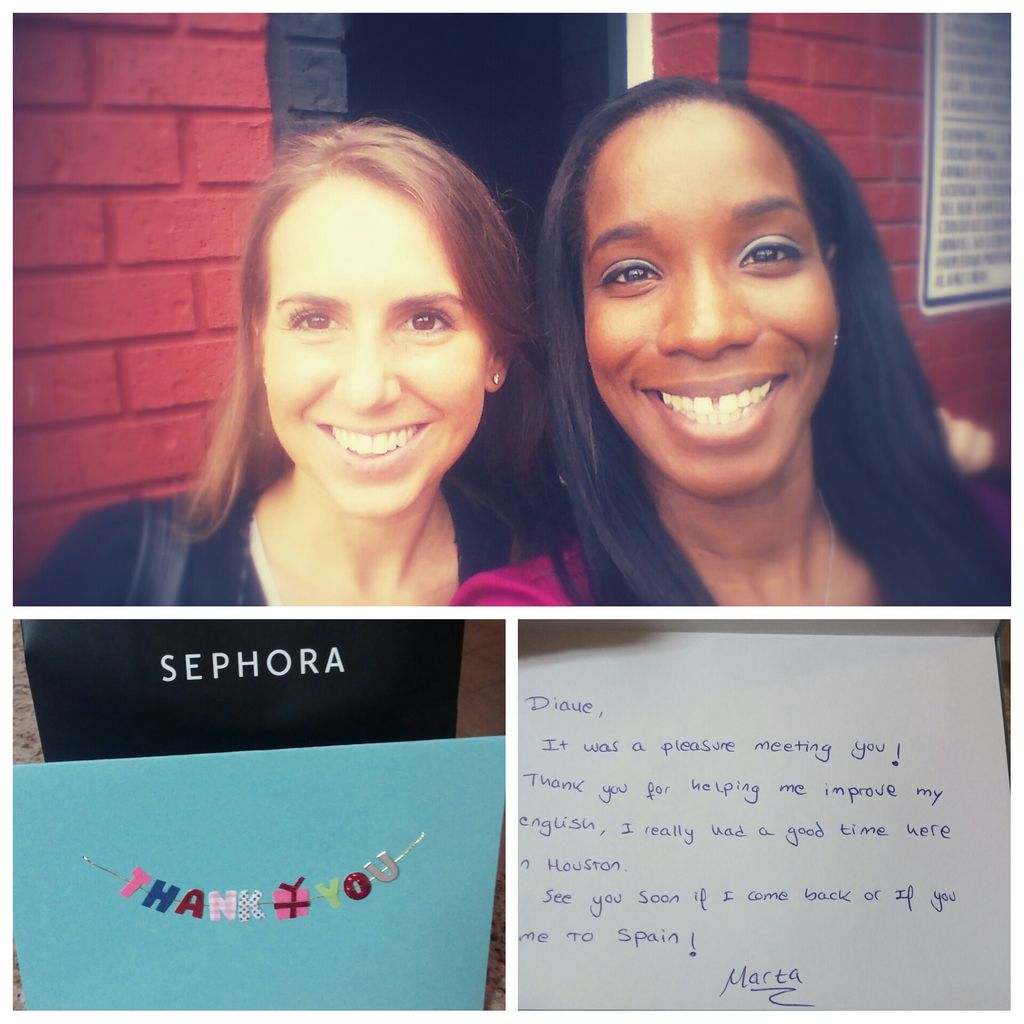 SEPHORA
THANK YOU
Diane,
It was a pleasure meeting you!
Thank you for helping me improve my
english, I really had a good time here
n Houston.
See you soon if I come back or If you
me to Spain!
Marta